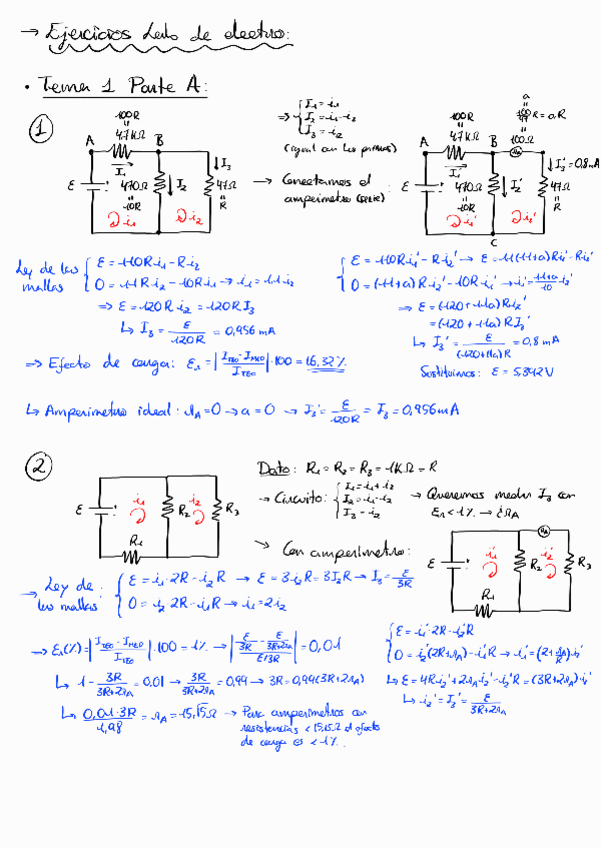 → Ejercicios Lab de electro:
• Tema 1 Parte A:
1
100R
"
4.7KΩ
A
B
I₁
I₂
I₃
ε
470Ω
"
10R
47Ω
"
R
i₁
i₂
⇒ { I₁ = i₁
I₂ = i₁ - i₂
I₃ = i₂
→ Conectamos el
amperímetro (serie)
a
100R = a.R
100R
"
4.7KΩ
100Ω
A
B
I₁'
I₂'
I₃' = 0,8mA
ε
470Ω
"
10R
47Ω
"
R
i₁'
i₂'
C
Ley de las
mallas
{ ε = 110R i₁ - R i₂
0 = 11R i₂ - 10R i₁ → i₁ = 1.1 i₂
⇒ ε = 120R i₂ = 120R I₃
↳ I₃ = ε/120R = 0,956 mA
⇒ Efecto de carga: εᵣ = |(I_TEO - I_MED)/I_TEO| · 100 = 16,32%
{ ε = 110R i₁' - R i₂' → ε = 11(11+a)R i₂' - R i₂'
0 = (11+a)R i₂' - 10R i₁' → i₁' = (11+a)/10 i₂'
⇒ ε = (120 + 11a)R i₂'
= (120 + 11a)R I₃'
↳ I₃' = ε/((120+11a)R) = 0,8 mA
Sustituimos: ε = 5.392V
↳ Amperímetro ideal: r_A = 0 → a = 0 → I₃' = ε/120R = I₃ = 0,956mA
2
Dato: R₁ = R₂ = R₃ = 1KΩ = R
→ Circuito: { I₁ = i₁
I₂ = i₁ - i₂
I₃ = i₂
→ Queremos medir I₃ con
εᵣ < 1% → ¿r_A
ε
i₁
i₂
R₂
R₃
R₁
→ Con amperímetro:
ε
i₁'
i₂'
R₂
R₃
R₁
→ Ley de
las mallas:
{ ε = i₁ 2R - i₂ R → ε = 3 i₂ R = 3 I₃ R → I₃ = ε/3R
0 = i₂ 2R - i₁ R → i₁ = 2i₂
⇒ εᵣ(%) = |(I_TEO - I_MED)/I_TEO| · 100 = 1% → |(ε/3R - ε/(3R+2r_A))/(ε/3R)| = 0,01
↳ 1 - 3R/(3R+2r_A) = 0.01 → 3R/(3R+2r_A) = 0,99 → 3R = 0,99(3R+2r_A)
↳ 0,01·3R/1,98 = r_A = 15,15Ω → Para amperímetros con
resistencias < 15,15Ω el efecto
de carga es < 1%.
{ ε = i₁' 2R - i₂' R
0 = i₂'(2R + r_A) - i₁' R → i₁' = (2 + r_A/R) i₂'
↳ ε = 4R i₂' + 2r_A i₂' - i₂' R = (3R + 2r_A) i₂'
↳ i₂' = I₃' = ε/(3R+2r_A)